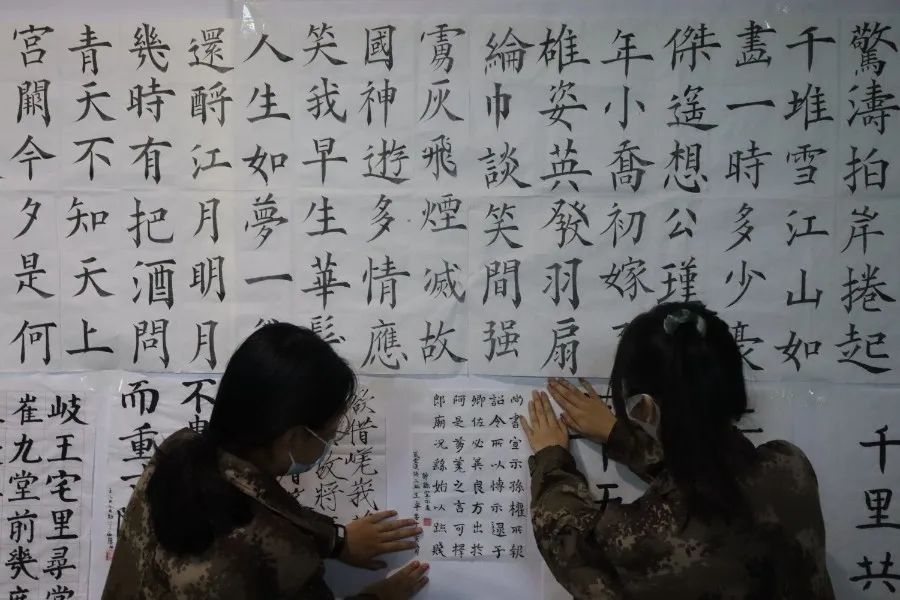 驚濤拍岸捲起
千堆雪江山如
畫一時多少豪
傑遙想公瑾
年小喬初嫁
雄姿英發羽扇
綸巾談笑間强
虜灰飛煙滅故
國神遊多情應
笑我早生華髮
人生如夢一
還酹江月明月
幾時有把酒問
青天不知天上
宮闕今夕是何
千里共
尚書宣示孫權所報
詔令所以博示逮于
卿佐必冀良方出於
阿是芻蕘之言可擇
郎廟况繇始以疏賤
欲借嵯峨
故將
不
而重
岐王宅里尋常
崔九堂前幾度